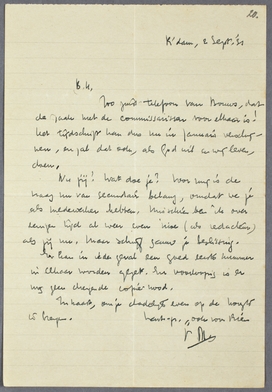 20.
A'dam, 2 Sept. '31
B.M.
Zoo juist telefoon van Bouws, dat
de zaak met de commissarissen voor elkaar is!
Het tijdschrift kan dus nu in Januari verschij-
nen, en zal dat ook, als God wil en wij leven,
doen.
Nu jij! Wat doe je? Voor mij is de
vraag nu van secundair belang, omdat we je
als medewerker hebben. Misschien ben ik over
eenigen tijd al weer even (als redacteur)
als jij nu. Maar schrijf gauw je beslissing.
kan in ieder geval een goed eerste nummer
in elkaar worden gezet. En voorloopig is er
nog geen copienood.
In haast, om je dadelijk even op de hoogte
te brengen.
hart. gr., ook van